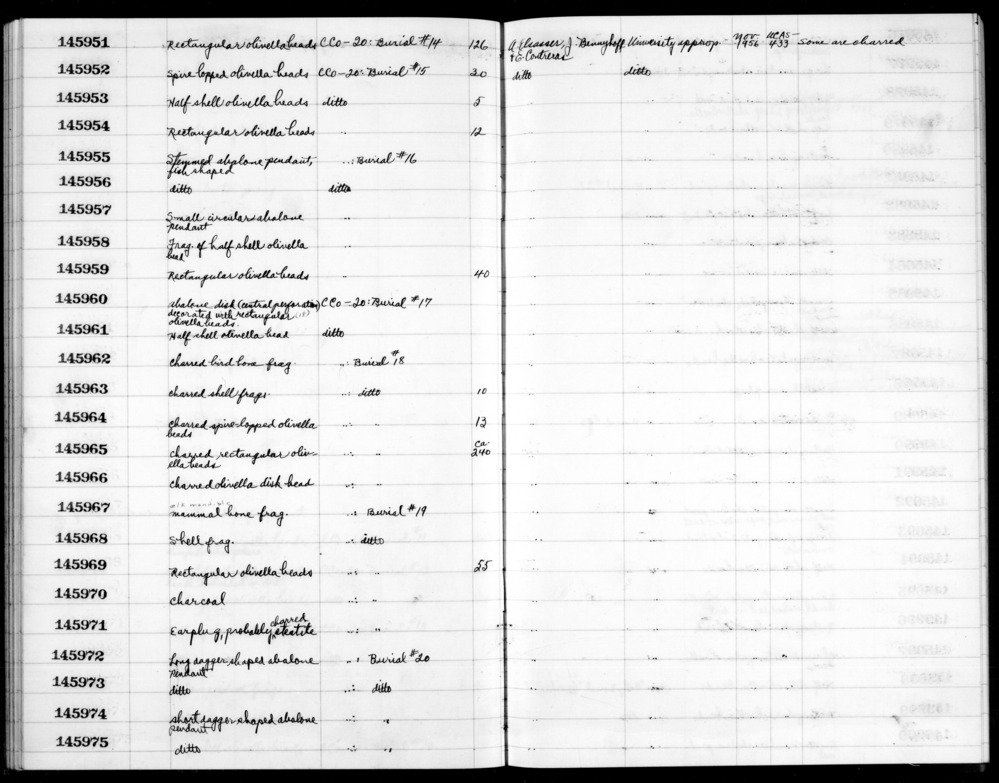 145951 Rectangular olivella beads CCo-20: Burial #14 126 A. Elsasser, J. Bennyhoff University approp. Nov. 1956 UCAS-433 Some are charred
+ G. Contreras
145952 Spire lopped olivella beads CCo-20: Burial #15 20 ditto ditto
145953 Half shell olivella beads ditto 5 " " " "
145954 Rectangular olivella beads " 12 " " " "
145955 Stemmed abalone pendant, " : Burial #16 " " " "
fish shaped
145956 ditto ditto " " " "
145957 Small circular abalone " " " " "
pendant
145958 Frag. of half shell olivella " " " " "
bead
145959 Rectangular olivella beads " 40 " " " "
145960 abalone disk (central perforation) CCo-20: Burial #17 " " " "
decorated with rectangular
olivella beads.
145961 Half shell olivella bead ditto " " " "
145962 Charred bird bone frag. " : Burial #18 " " " "
145963 charred shell frags. " ditto 10 " " " "
145964 charred spire-lopped olivella " " 13 " " " "
beads
145965 charred rectangular oliv- " " ca 240 " " " "
ella beads
145966 Charred olivella disk bead " : " " " " "
145967 mammal bone frag. " : Burial #19 " " " "
145968 Shell frag. " : ditto " " " "
145969 Rectangular olivella beads " : " 55 " " " "
145970 charcoal " : " " " " "
145971 Earplug, probably charred steatite " : " " " " "
145972 Long dagger shaped abalone " : Burial #20 " " " "
pendant
145973 ditto " : ditto " " " "
145974 short dagger shaped abalone " : " " " " "
pendant
145975 ditto " : " " " " "